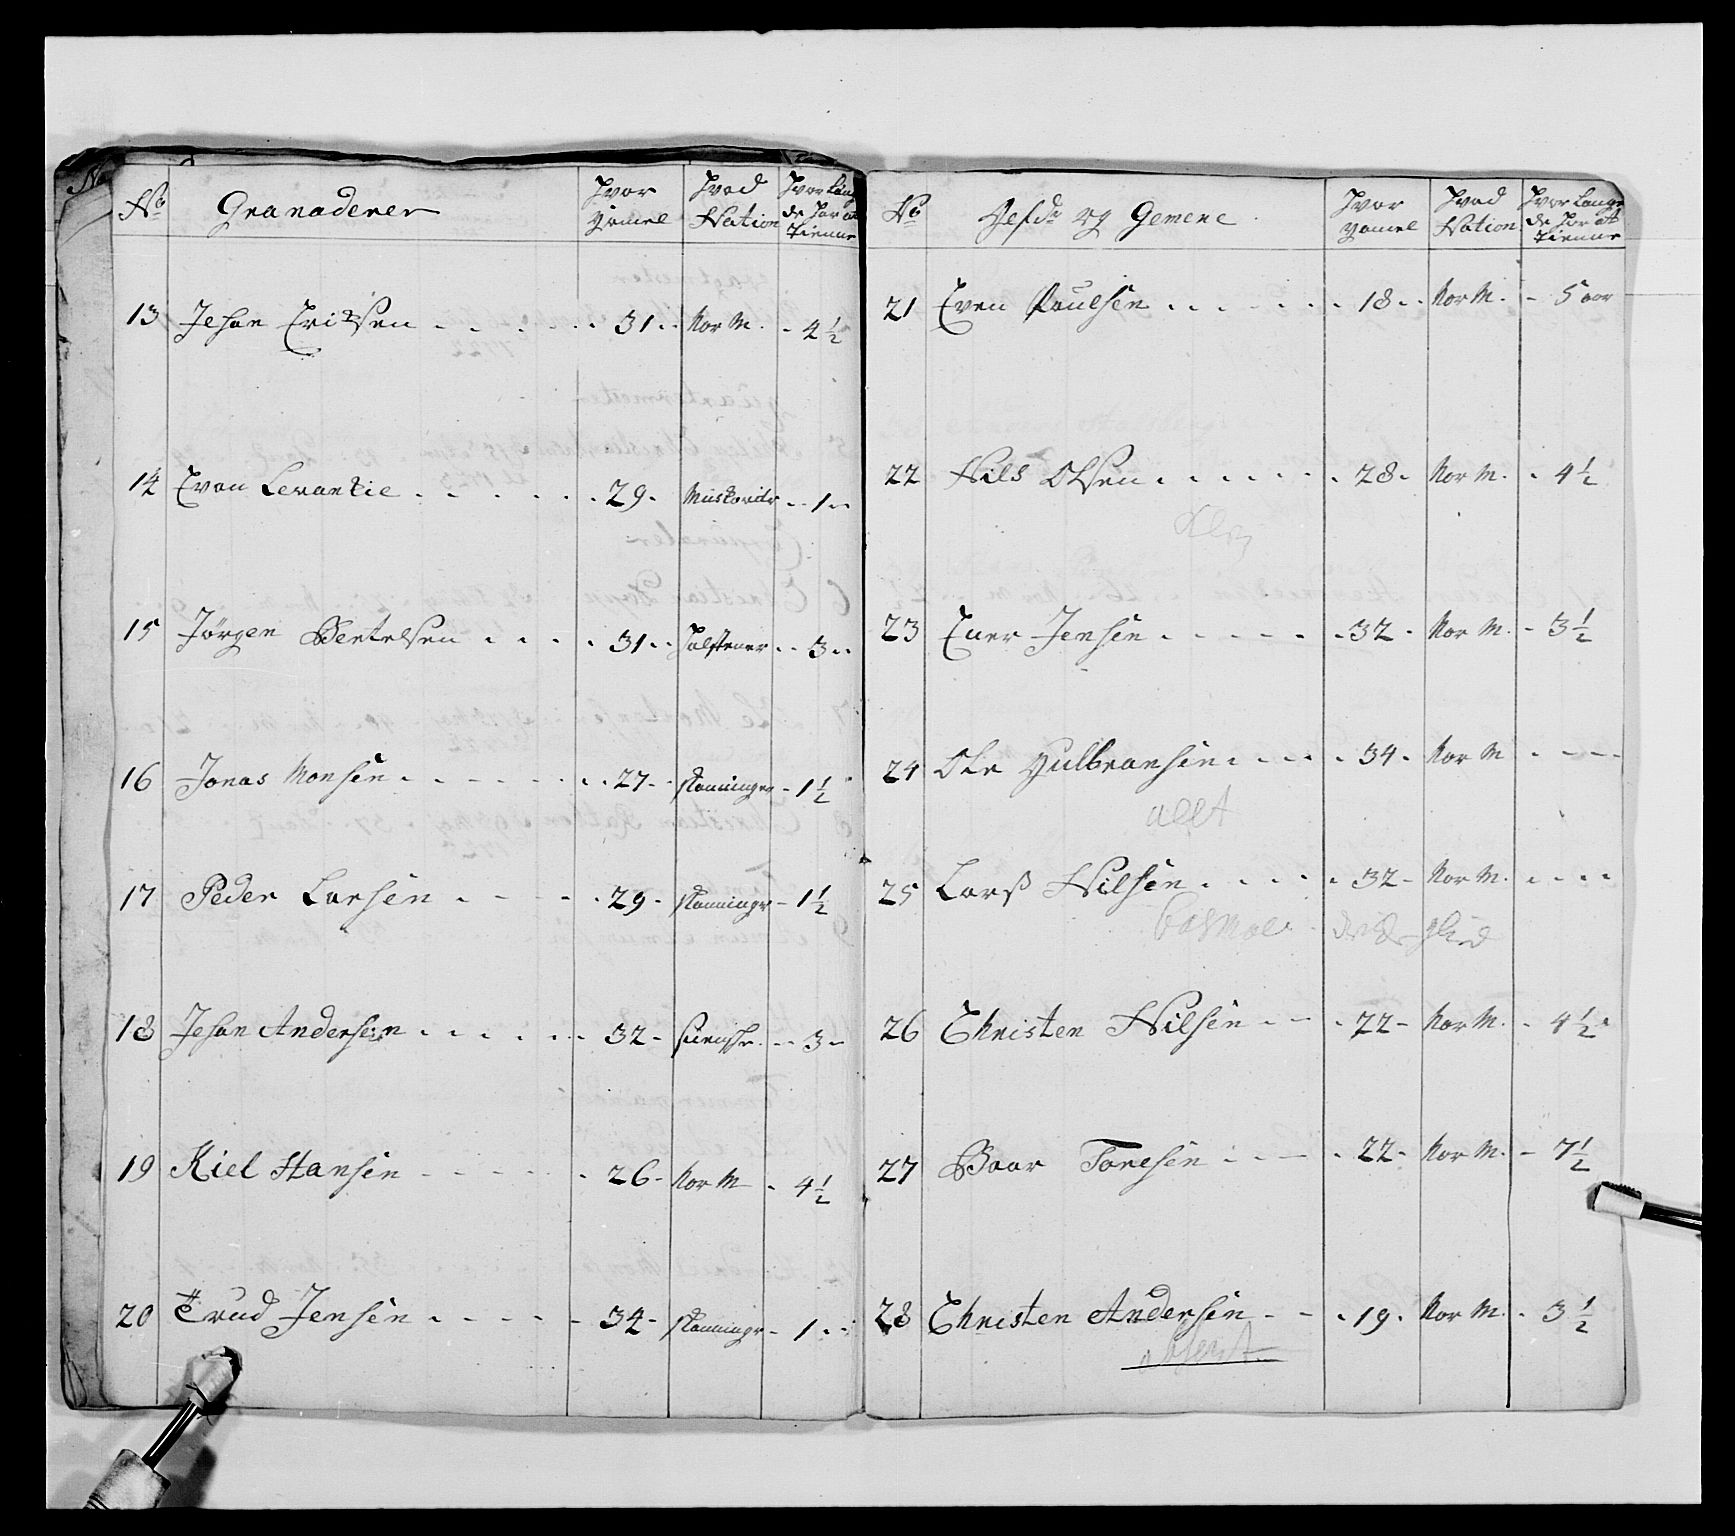 No Granaderer Hvor gamel Hvad Nation Hvor Lang de har at Tienne
13 Johan Erichsen 31 Nor M. 4½
14 Evan Levantie 29 Muskovitr 1
15 Jørgen Bertelsen 31 Holstener 3
16 Jonas Monsen 27 skaaninger 1½
17 Peder Larsen 29 skaaningr 1½
18 Johan Andersen 32 3
19 Kiel Hansen 26 Nor M 4½
20 Trud Jensen 34 skaaningr 1
No og Gemene Hvor gamel Hvad Nation Hvor Lange de har att Tienne
21 Even Poulsen 18 Nor M. 5 aar
22 Nils Olsen 28 Nor M. 4½
23 Ener Jensen 32 Nor M. 3½
24 Ole Gulbransen 34 Nor M
25 Larß Nilsen 32 Nor M.
26 Christen Nilsen 22 Nor M. 4½
27 Baar Toresen 22 Nor M. 7½
28 Christen Andersen 19 Nor M. 3½